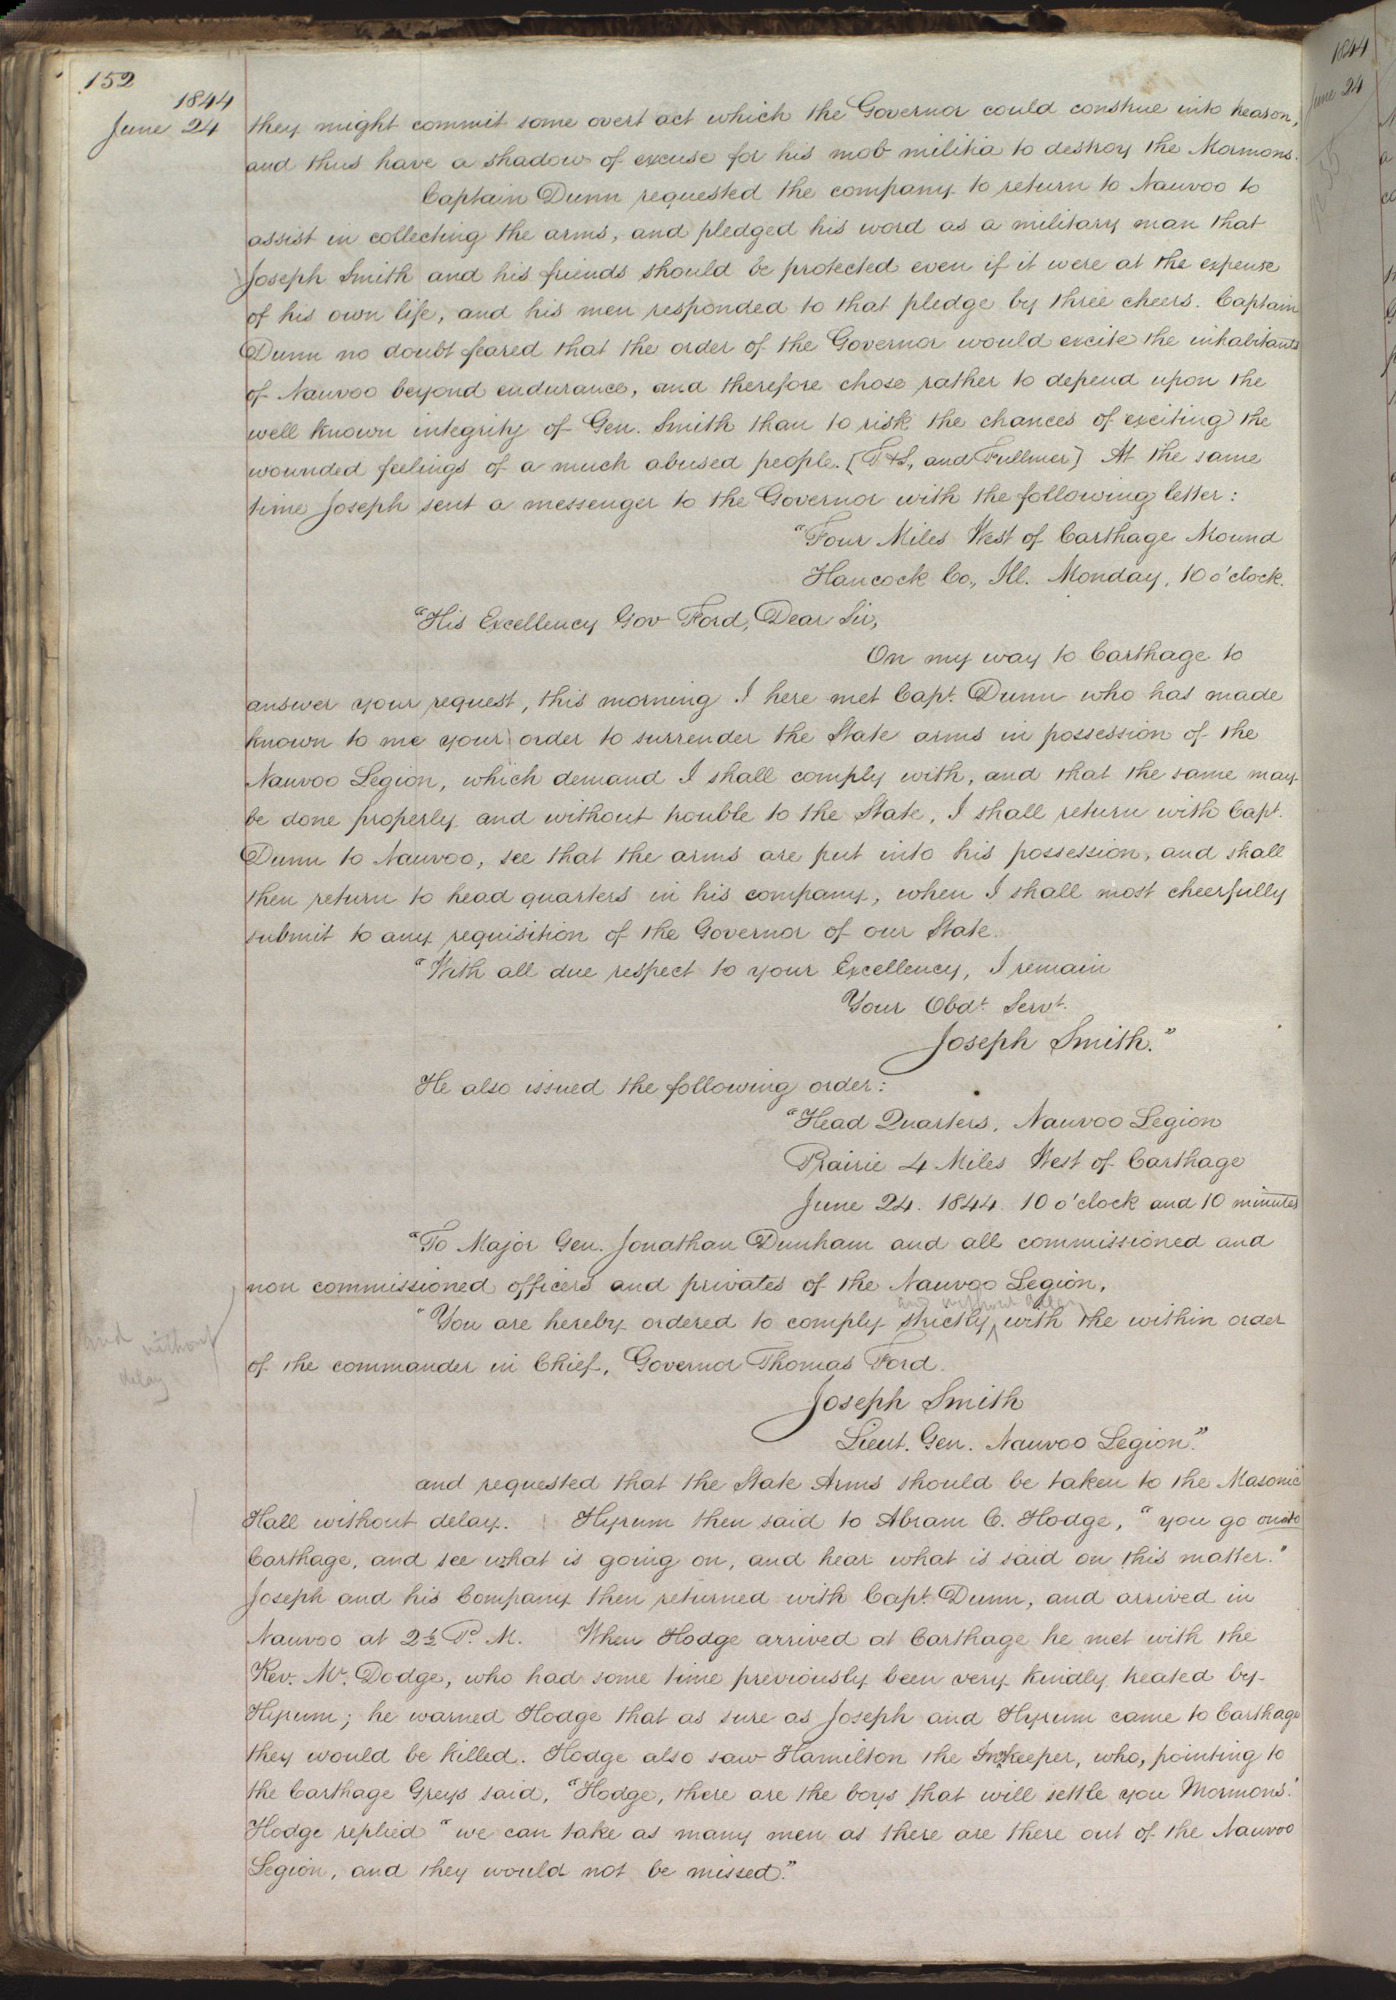 152
1844
June 24
they might commit some overt act which the Governor could construe into treason,
and thus have a shadow of excuse for his mob militia to destroy the Mormons.
Captain Dunn requested the company to return to Nauvoo to
assist in collecting the arms, and pledged his word as a military man that
Joseph Smith and his friends should be protected even if it were at the expense
of his own life, and his men responded to that pledge by three cheers. Captain
Dunn no doubt feared that the order of the Governor would excite the inhabitants
of Nauvoo beyond endurance, and therefore chose rather to depend upon the
well known integrity of Gen. Smith than to risk the chances of exciting the
wounded feelings of a much abused people. [T&S., and Fullmer] At the same
time Joseph sent a messenger to the Governor with the following letter:
"Four Miles West of Carthage Mound
Hancock Co., Ill. Monday, 10 o'clock.
"His Excellency Gov Ford, Dear Sir,
On my way to Carthage to
answer your request, this morning I here met Capt. Dunn who has made
known to me your order to surrender the State arms in possession of the
Nauvoo Legion, which demand I shall comply with, and that the same may
be done properly and without trouble to the State, I shall return with Capt.
Dunn to Nauvoo, see that the arms are put into his possession, and shall
then return to head quarters in his company, when I shall most cheerfully
submit to any requisition of the Governor of our State.
"With all due respect to your Excellency, I remain
Your Obdt. Servt.
Joseph Smith."
He also issued the following order:
"Head Quarters, Nauvoo Legion
Prairie 4 Miles West of Carthage
June 24. 1844. 10 o'clock and 10 minutes
"To Major Gen. Jonathan Dunham and all commissioned and
non commissioned officers and privates of the Nauvoo Legion,
and without delay
"You are hereby ordered to comply strictly ^ with the within order
and without
delay
of the commander in Chief, Governor Thomas Ford.
Joseph Smith
Lieut. Gen. Nauvoo Legion."
and requested that the State Arms should be taken to the Masonic
Hall without delay. Hyrum then said to Abram C. Hodge, "you go on to
Carthage, and see what is going on, and hear what is said on this matter."
Joseph and his Company then returned with Capt. Dunn, and arrived in
Nauvoo at 2½ P. M. When Hodge arrived at Carthage he met with the
Rev. Mr. Dodge, who had some time previously been very kindly treated by
Hyrum; he warned Hodge that as sure as Joseph and Hyrum came to Carthage
they would be killed. Hodge also saw Hamilton the Innkeeper, who, pointing to
the Carthage Greys said, "Hodge, there are the boys that will settle you Mormons."
Hodge replied "we can take as many men as there are there out of the Nauvoo
Legion, and they would not be missed."
1844
June 24